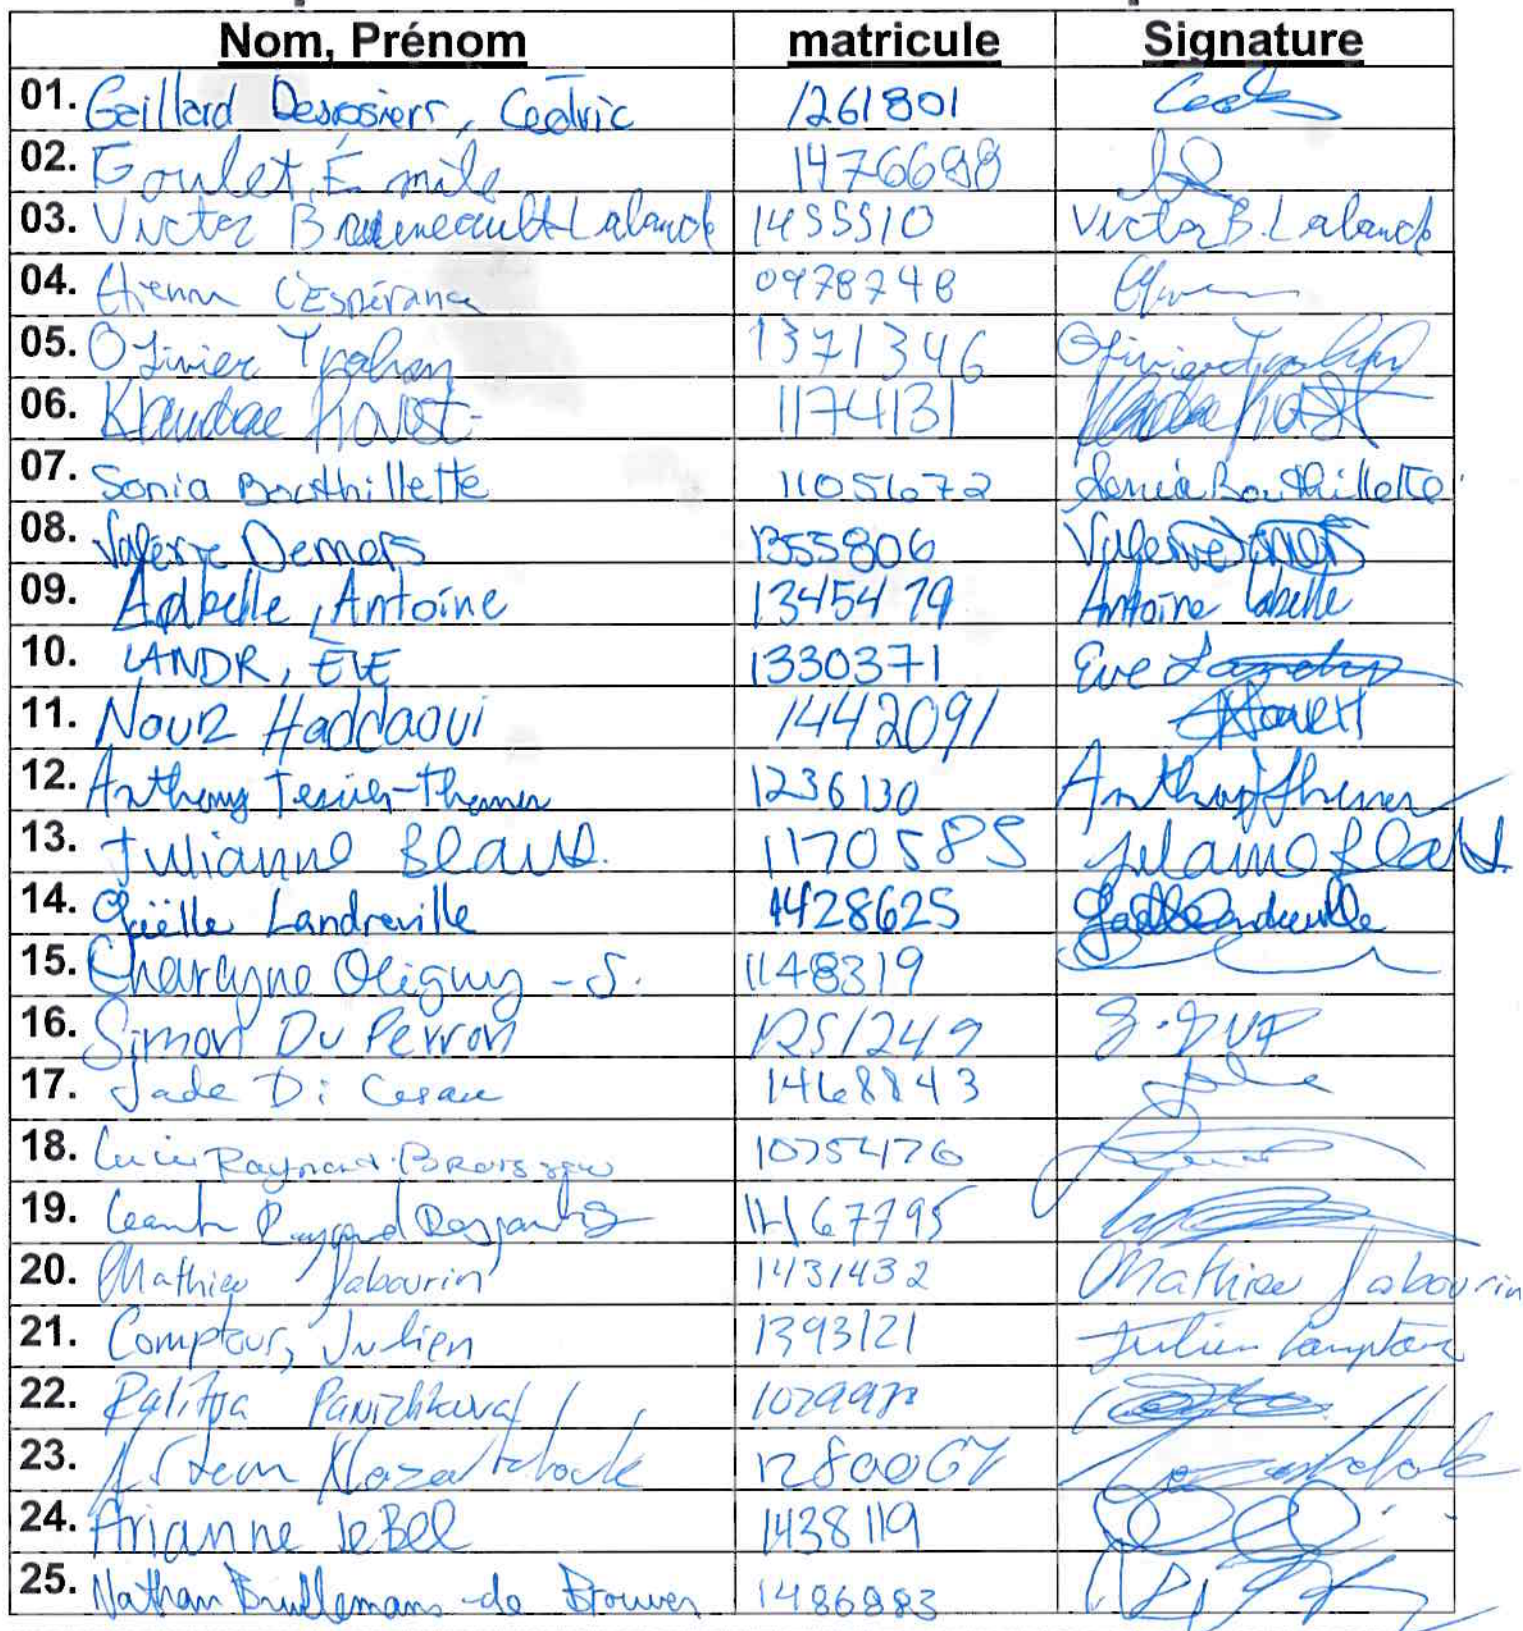 Nom, Prénom matricule Signature
01. Gaillard Desrosiers, Cédric 1261801
02. Goulet, Émile 1476698
03. Victor Bruneault-Lalande 1455510 Victor B. Lalande
04. Étienne L'Espérance 0978748
05. Olivier Trahan 1371346 Olivier Trahan
06. Klaudia Provost 1174131
07. Sonia Bouthillette 11051672 Sonia Bouthillette
08. Valérie Demers 1355806 Valerie Demers
09. Labelle, Antoine 1345479 Antoine Labelle
10. LANDR, ÈVE 1330371 Eve Landry
11. Nour Haddaoui 1442091
12. Anthony 1236130
13. Julianne 1170585 Julianne
14. Gaëlle Landreville 1428625 Gaëlle Landreville
15. Charayne Oligny - S. 1148319
16. Simon Du Perron 1251249
17. Jade Di Cesare 1468843
18. 1075476
19. 1467795
20. Mathieu Sabourin 1431432 Mathieu Sabourin
21. Comptour, Julien 1393121 Julien Comptour
22. Ralitsa
23. 1280067
24. Arianne LeBel 1438119
25. Nathan Brullemans-de Brouwer 1486883